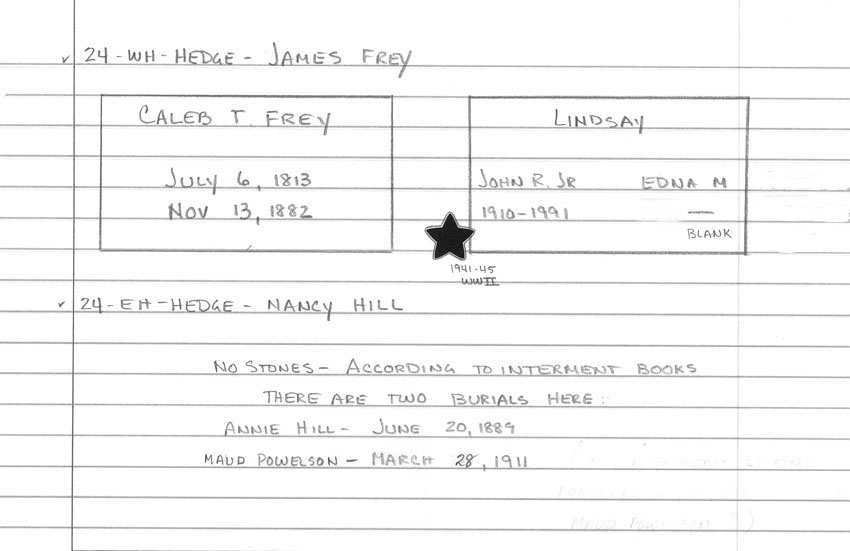 ✓ 24-WH-HEDGE - JAMES FREY
CALEB T. FREY
JULY 6, 1813
NOV 13, 1882
LINDSAY
JOHN R. JR EDNA M
1910-1991 —
BLANK
1941-45
WWII
✓ 24-EH-HEDGE - NANCY HILL
NO STONES - ACCORDING TO INTERMENT BOOKS
THERE ARE TWO BURIALS HERE:
ANNIE HILL - JUNE 20, 1889
MAUD POWELSON - MARCH 28, 1911
MAUD POWELSON